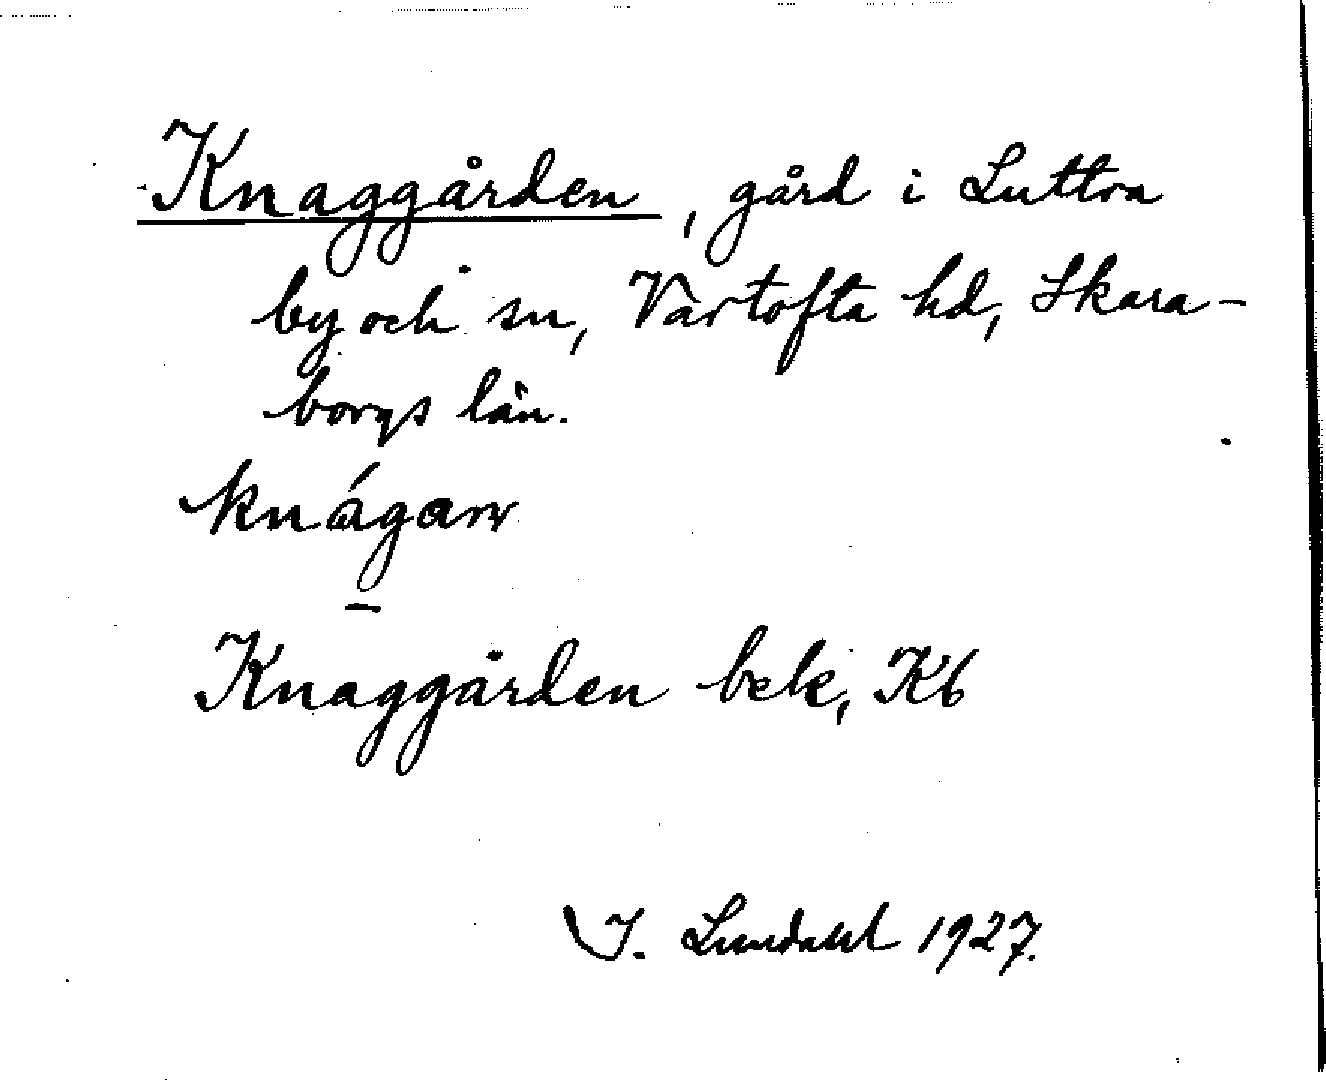 Knaggården, gård i Luttra
by och sn, Vartofta hd, Skara-
borgs län.
knágarv
Knaggården bek, Kb
I. Lundahl 1927.